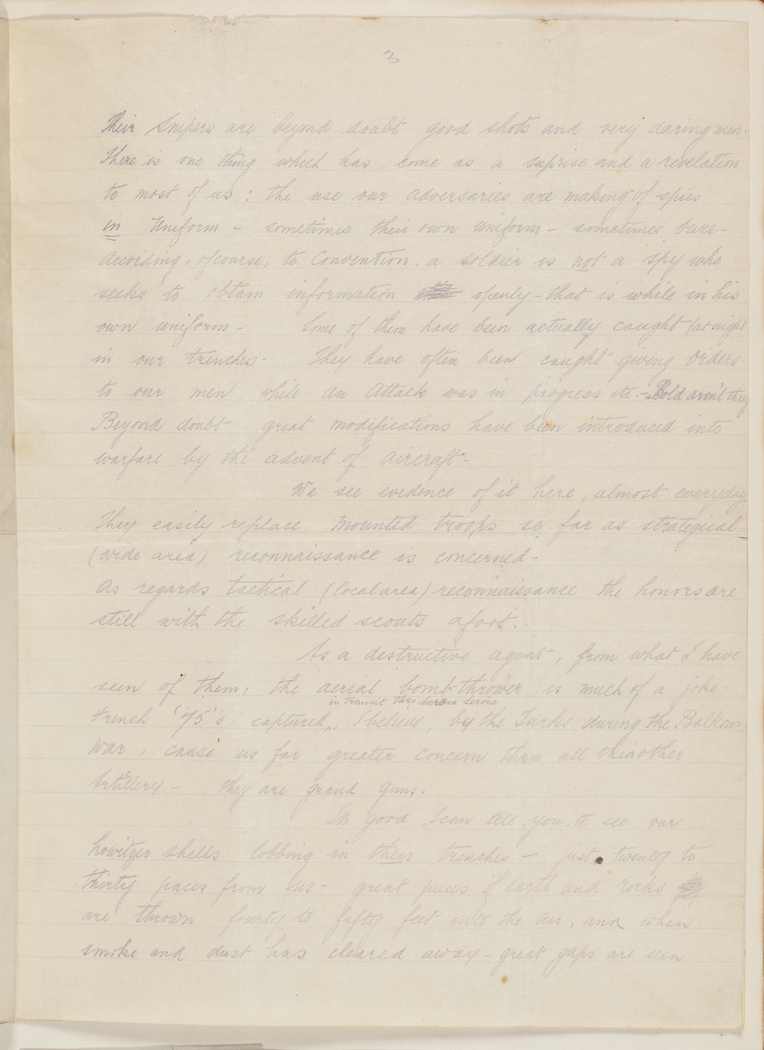 3
Their Snipers are beyond doubt good shots and very daring men.
There is one thing which has come as a suprise and a revelation
to most of us : the use our adversaries are making of spies
in Uniform - sometimes their own uniform - sometimes ours -
According, ofcourse, to Convention. a soldier is not a spy who
seeks to obtain information openly - that is while in his
own uniform - Some of them have been actually caught (at night
in our trenches. They have often been caught giving orders
to our men, while an Attack was in progress etc. - Bold arn't they
Beyond doubt great modifications have been introduced into
warfare by the advent of aircraft -
We see evidence of it here, almost everyday
They easily replace mounted troops so far as strategical
(wide area) reconnaissance is concerned -
As regards tactical (local area) reconnaissance the honors are
still with the skilled scouts afoot.
As a destructive agent, from what I have
seen of them, the aerial bomb-thrower is much of a joke.
in transit thro Servia
French '75's captured, I believe, by the Turks during the Balkan
War, cause us far greater concern than all their other
Artillery - they are grand guns.
Its good I can tell you, to see our
howitzer shells lobbing in their trenches - just twenty to
thirty paces from us - great pieces of earth and rocks
are thrown fourty to fifty feet into the air, and when
smoke and dust has cleared away - great gaps are seen